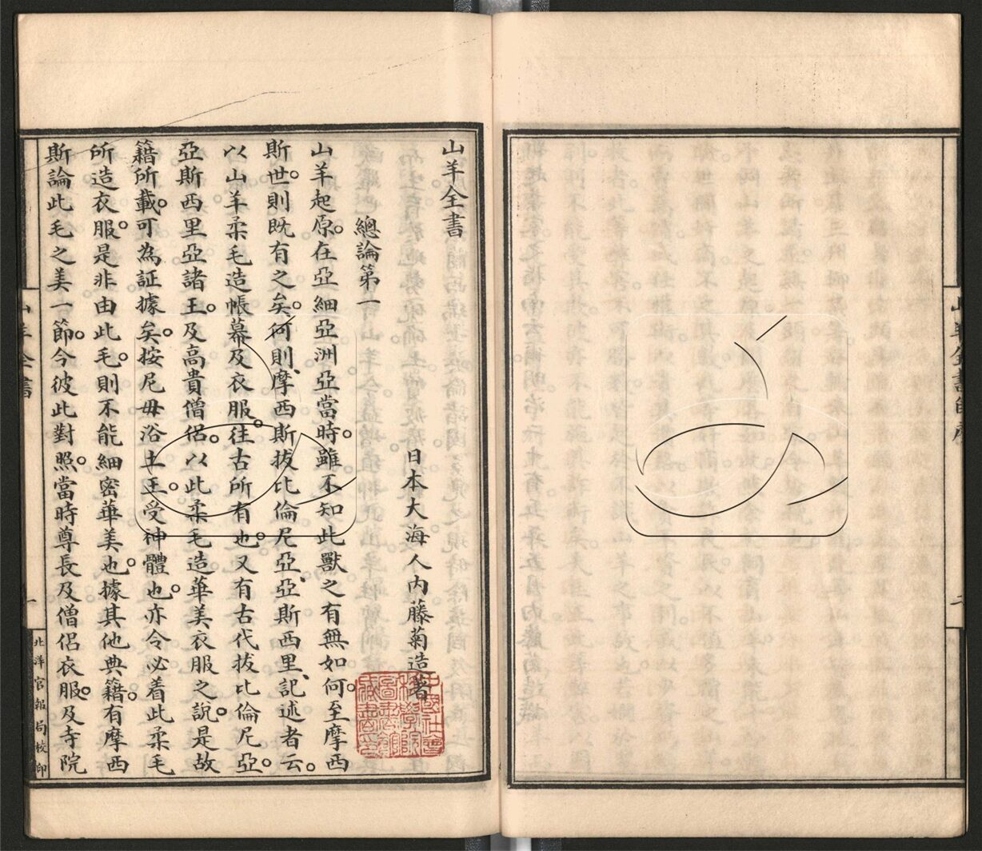 山羊全書
總論第一
日本大海人內藤菊造著
山羊起原。在亞細亞洲亞當時。雖不知此獸之有無如何。至摩西
斯世。則既有之矣。何則、摩西斯拔比倫尼亞、亞斯西里、記述者云。
以山羊柔毛造帳幕及衣服。往古所有也。又有古代拔比倫尼亞。
亞斯西里亞諸王。及高貴僧侶。以此柔毛。造華美衣服之說。是故
籍所載。可為証據矣。按尼毋浴土王。受神體也。亦令必着此柔毛
所造衣服。是非由此毛。則不能細密華美也。據其他典籍。有摩西
斯論此毛之美一節。今彼此對照。當時尊長及僧侶衣服。及寺院
山羊全書
北洋官報局校印